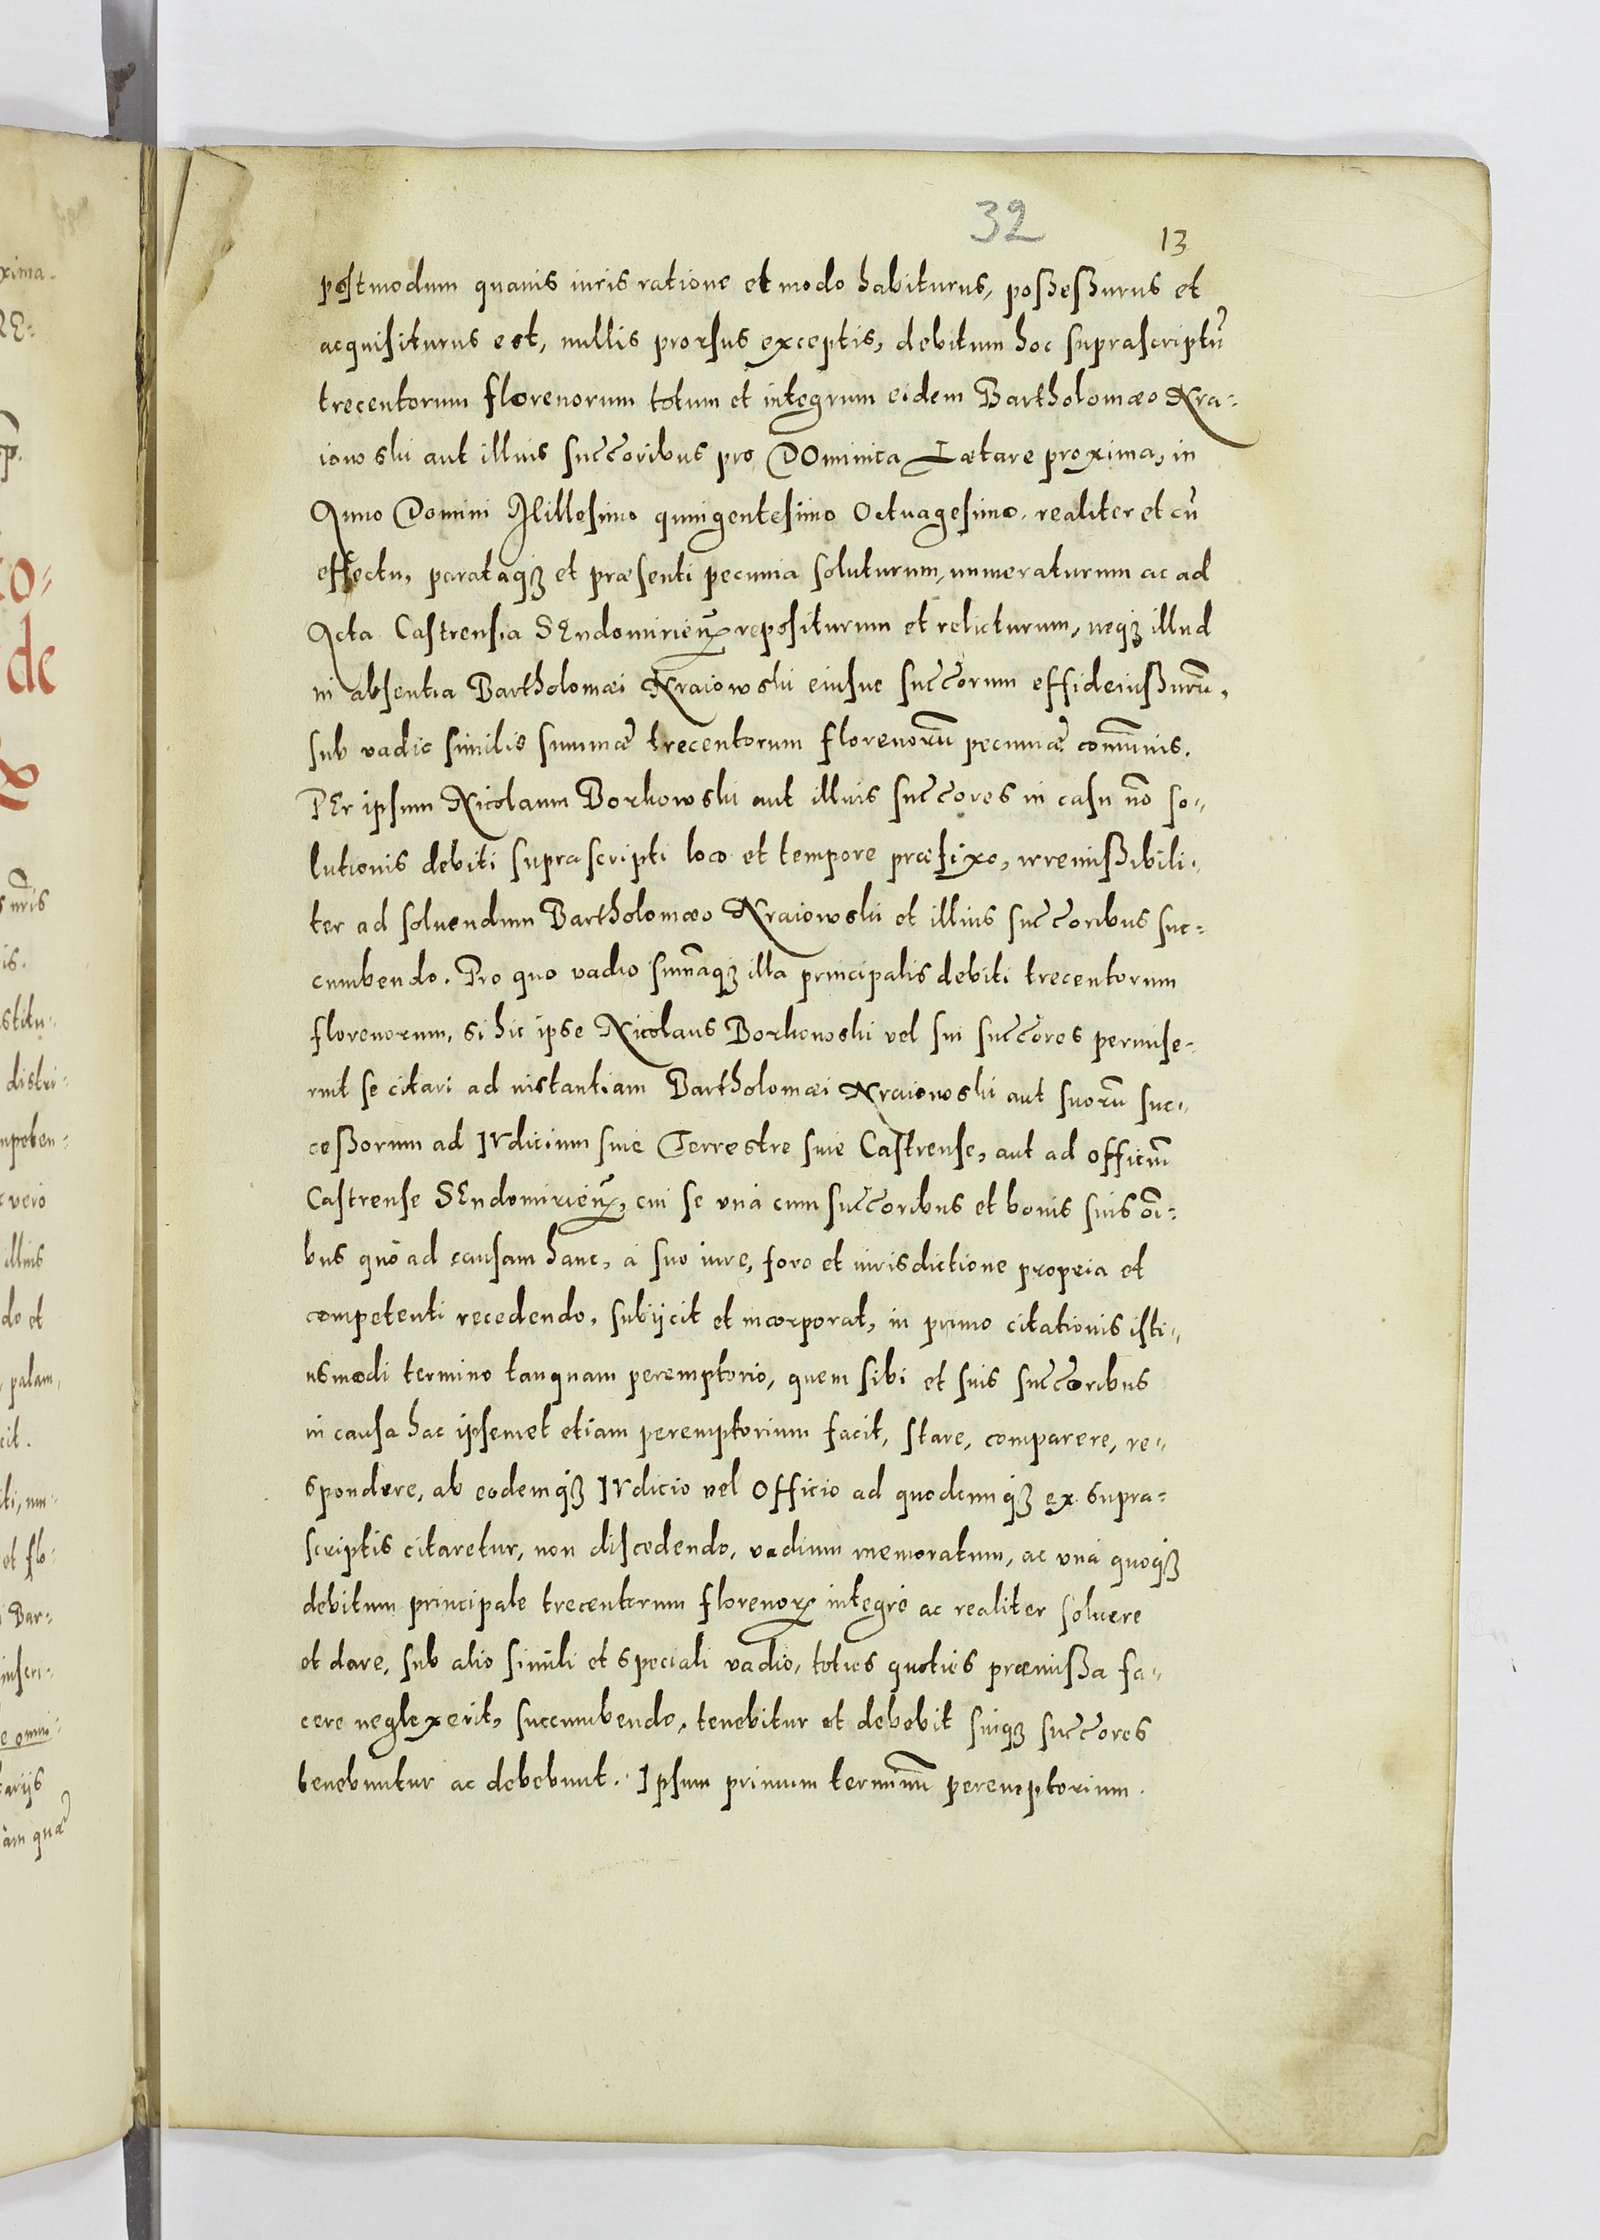 32
13
postmodum quauis iuris ratione et modo habiturus, possessurus et
acquisiturus est, nullis prorsus exceptis, debitum hoc suprascriptũ
trecentorum florenorum totum et integrum eidem Bartholomæo Kra-
iowski aut illius succoribus pro DOminica Lætare proxima, in
Anno Domini Millesimo quingentesimo Octuagesimo, realiter et cũ
effectu, parataqꝫ et præsenti pecunia soluturum, numeraturum ac ad
Acta Castrensia SEndomirieñ repositurum et relicturum, neqꝫ illud
in absentia Bartholomæi Kraiowski eiusue succorum effideiussurũ,
sub vadio similis summæ trecentorum florenorũ pecuniæ com̃unis.
PEr ipsum Nicolaum Borkowski aut illius succores in casu nõ so-
lutionis debiti suprascripti loco et tempore præfixo, irremissibili-
ter ad soluendum Bartholomæo Kraiowski et illius succoribus suc-
cumbendo. Pro quo vadio sum̃aqꝫ illa principalis debiti trecentorum
florenorum, si hic ipse Nicolaus Borkowski vel sui succores permise-
rint se citari ad instantiam Bartholomæi Kraiowski aut suorũ suc-
cessorum ad IVdicium siue Terrestre siue Castrense, aut ad officiũ
Castrense SEndomirieñ, cui se vnà cum succoribus et bonis suis oĩ-
bus quo ad causam hanc, à suo iure, foro et iurisdictione propria et
competenti recedendo, subijcit et incorporat, in primo citationis isti-
usmodi termino tanquam peremptorio, quem sibi et suis succoribus
in causa hac ipsemet etiam peremptorium facit, stare, comparere, re-
spondere, ab eodemqꝫ IVdicio vel Officio ad quodcunqꝫ ex supra-
scriptis citaretur, non discedendo, vadium memoratum, ac vnà quoqꝫ
debitum principale trecentorum florenorꝝ integrè ac realiter soluere
et dare, sub alio simili et speciali vadio, toties quoties præmissa fa-
cere neglexerit, succumbendo, tenebitur et debebit suiqꝫ succores
tenebuntur ac debebunt. Ipsum primum terminũ peremptorium.